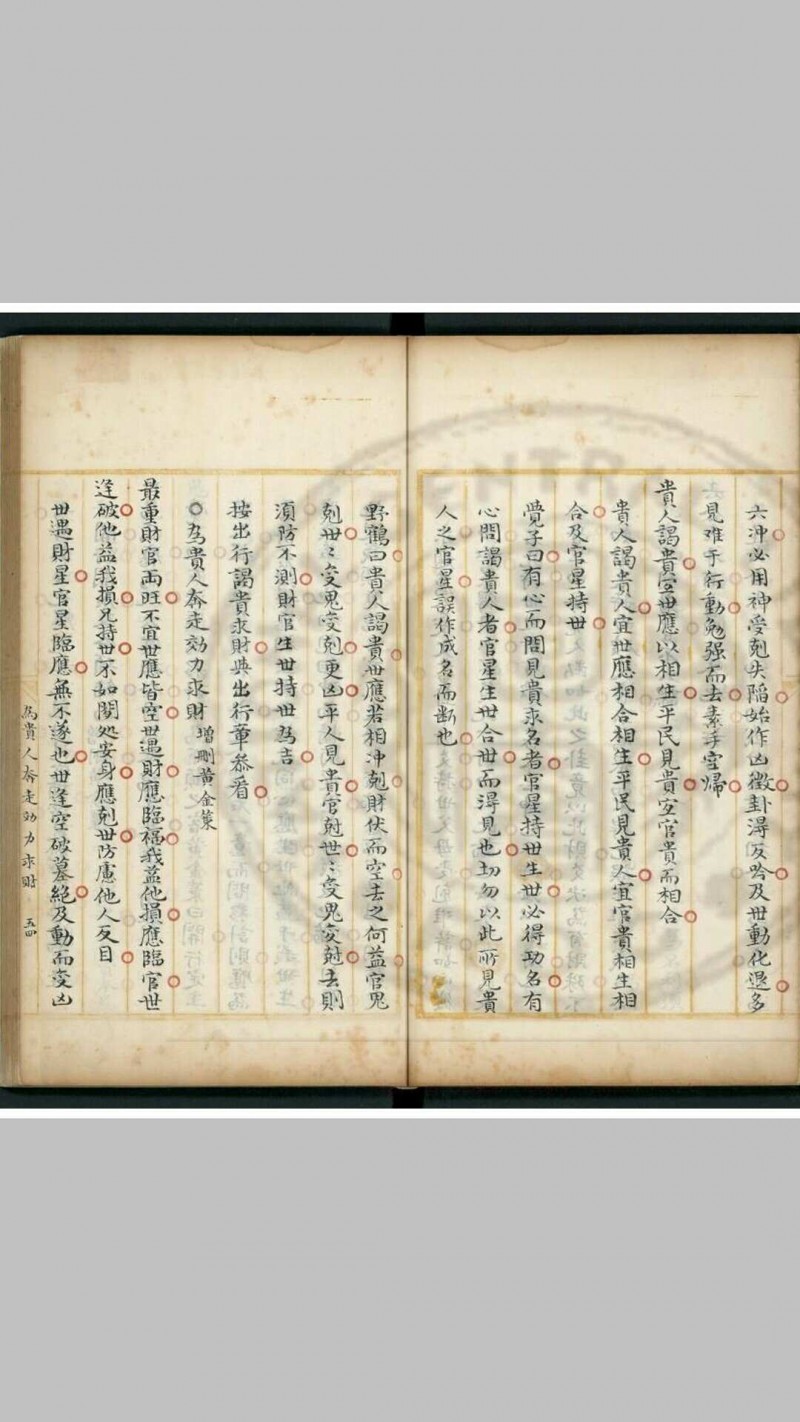 六沖必用神受剋失陷始作凶徵卦得反吟及世動化退多
見难于行動勉强而去素手空帰
貴人謁貴宜世應以相生平民見貴宜官貴而相合
貴人謁貴人宜世應相合相生平民見貴人宜官貴相生相
合及官星持世
覺子曰有心而問見貴求名者官星持世生世必得功名有
心問謁貴人者官星生世合世而得見也切勿以此所見貴
人之官星誤作成名而断也
野鶴曰貴人謁貴世應若相冲剋財伏而空去之何益官鬼
剋世〻受鬼受剋更凶平人見貴官尅世〻受鬼变尅去則
須防不測財官生世持世為吉
按出行謁貴求財與出行章叅看
○為貴人奔走効力求財 增刪黄金策
最重財官両旺不宜世應皆空世遇財應臨福我益他損應臨官世
逢破他益我損兄持世不如閑処安身應剋世防慮他人反目
世遇財星官星臨應無不遂也世逢空破墓絶及動而变凶
為貴人奔走効力求財 五四